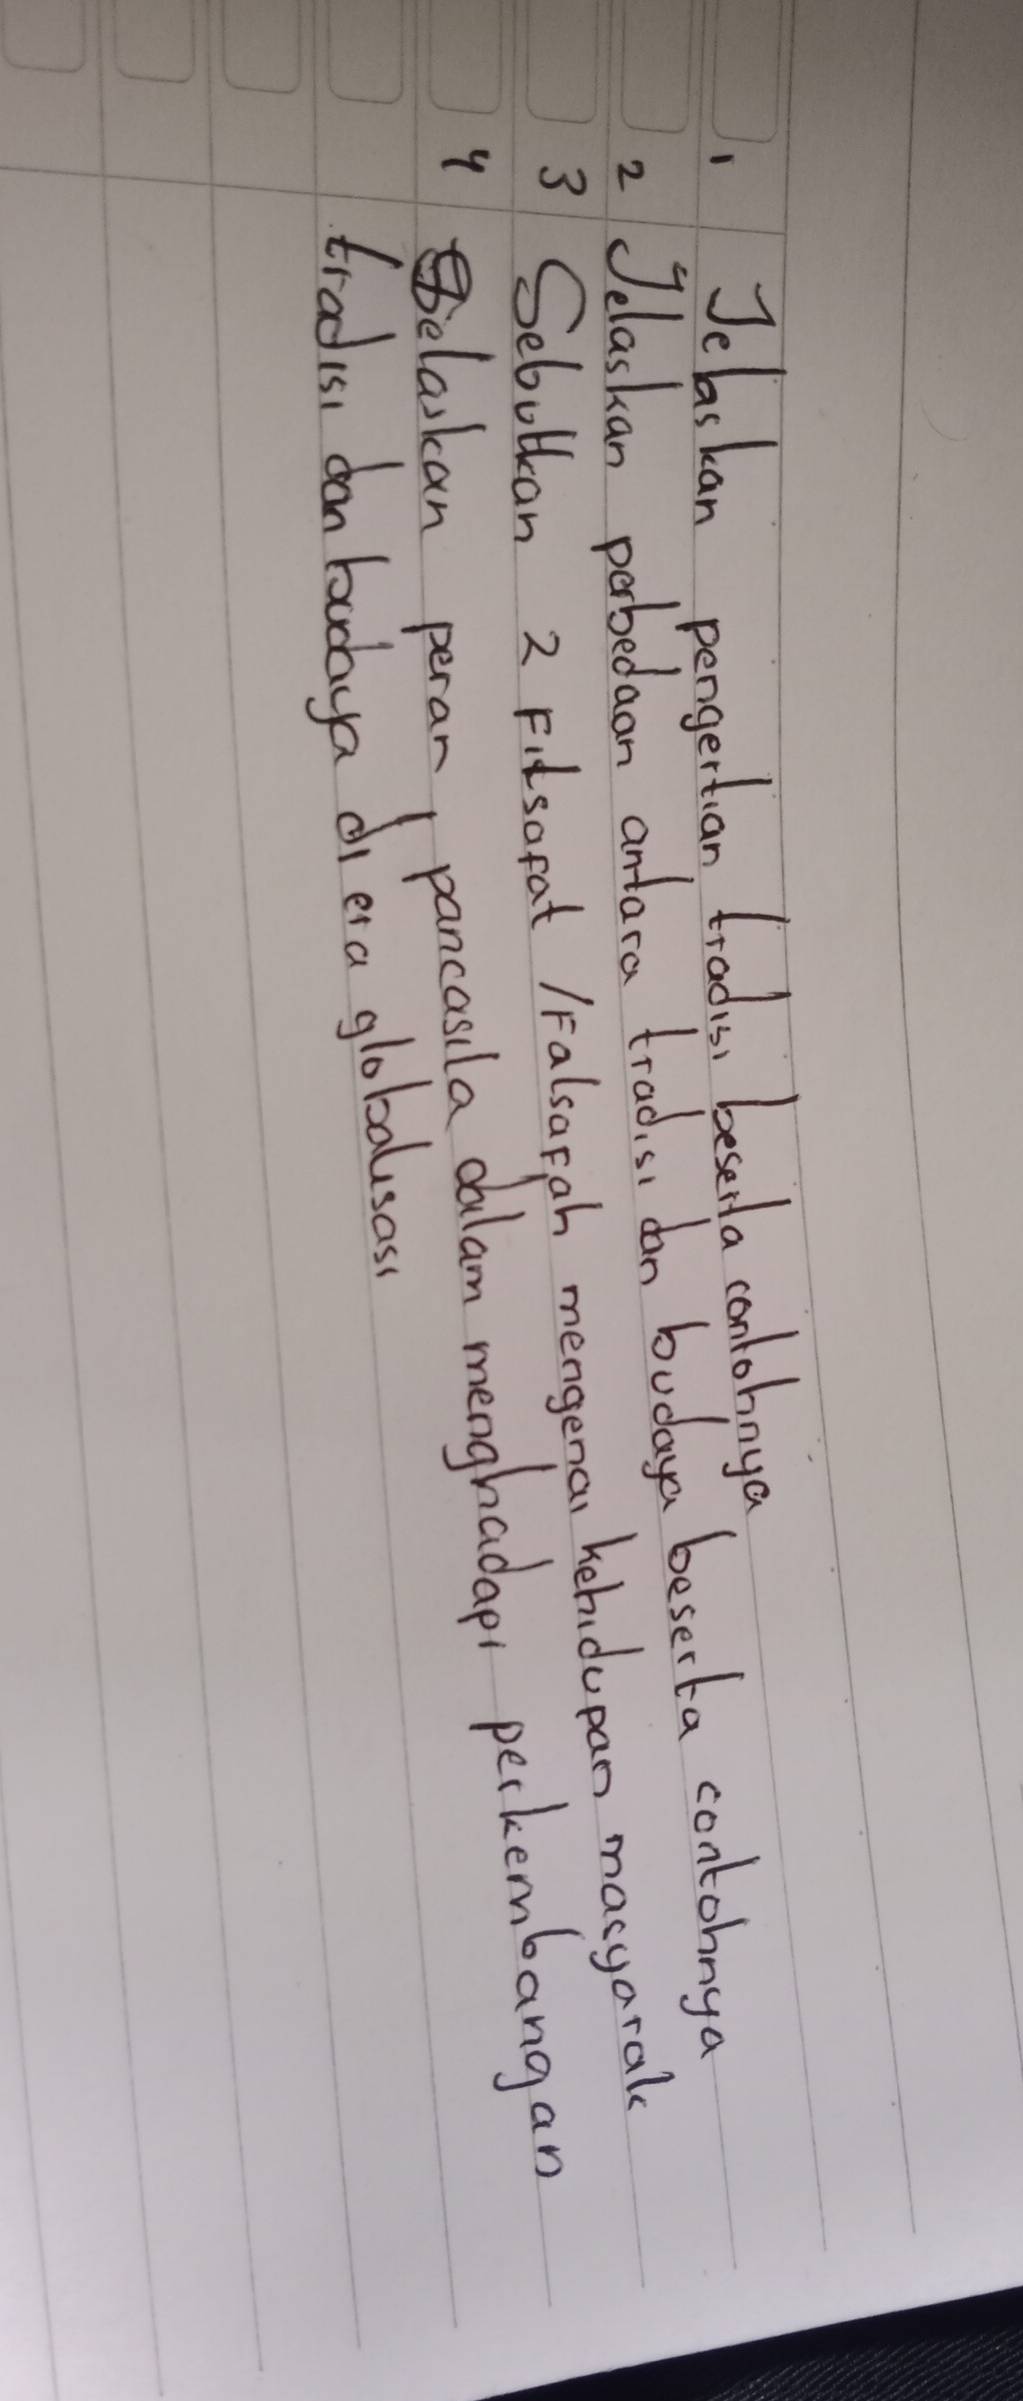 1 Jelaskan pengertian tradisi beserta contohnya
2 Jelaskan perbedaan antara tradisi dan budaya beserta contohnya
3 Sebutkan 2 Filsafat / Falsafah mengenai kehidupan masyarak
4 Jelaskan peran pancasila dalam menghadapi perkembangan
tradisi dan budaya di era globalisasi